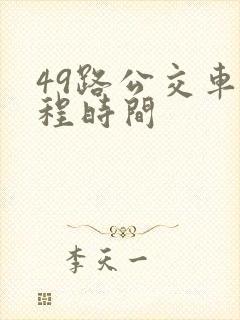 49路公交车
程時間
李天一